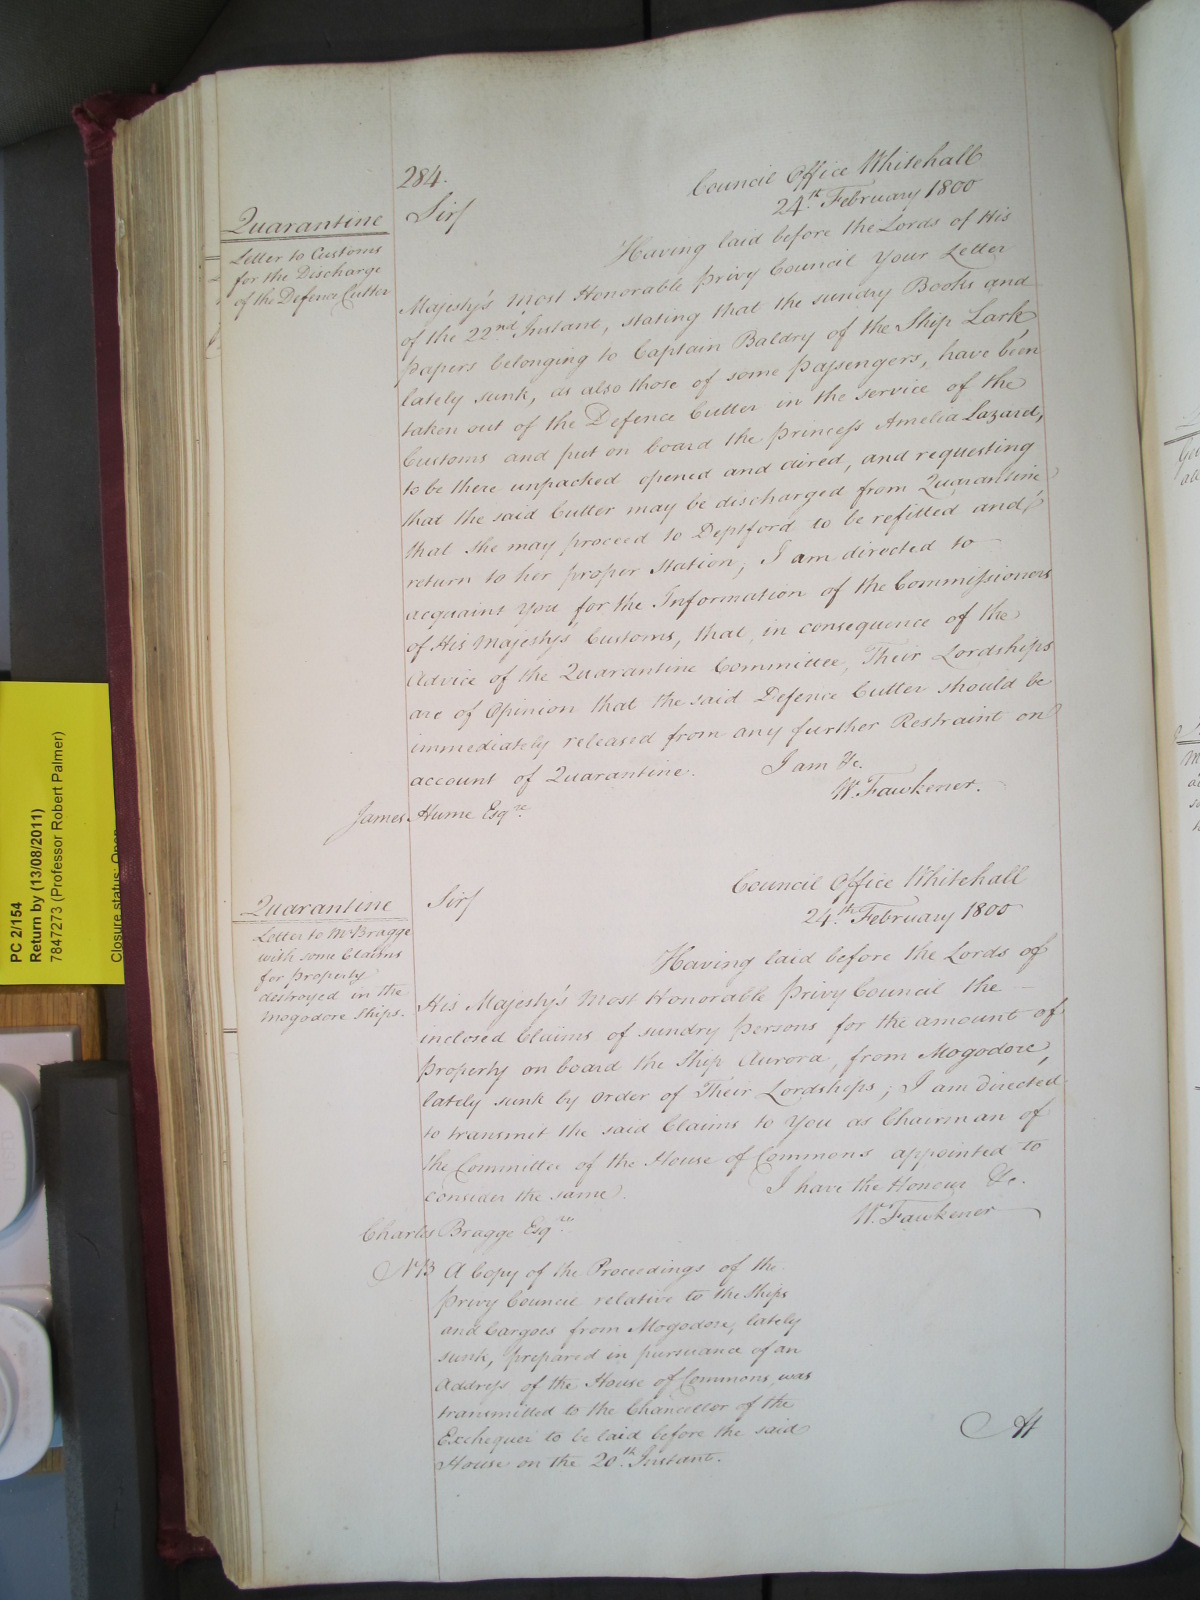 284.
Council Office Whitehall
24th February 1800
Quarantine
Letter to Customs
for the Discharge
of the Defence Cutter
Sir/
Having laid before the Lords of His
Majesty's Most Honorable Privy Council Your Letter
of the 22nd Instant, stating that the sundry Books and
papers belonging to Captain Baldry of the Ship Lark,
lately sunk, as also those of some passengers, have been
taken out of the Defence Cutter in the service of the
Customs and put on board the Princess Amelia Lazard,
to be there unpacked opened and aired, and requesting
that the said Cutter may be discharged from Quarantine
that she may proceed to Deptford to be refitted and
return to her proper Station; I am directed to
acquaint You for the Information of the Commissioners
of His Majesty's Customs, that in consequence of the
Advice of the Quarantine Committee, Their Lordships
are of Opinion that the said Defence Cutter should be
immediately released from any further Restraint on
account of Quarantine. I am &c.
W. Fawkener.
James Hume Esqre.
Council Office Whitehall
24th February 1800
Quarantine
Letter to Mr Bragge
with some Claims
for Property
destroyed in the
Mogodore Ships.
Sir/
Having laid before the Lords of
His Majesty's Most Honorable Privy Council the
inclosed Claims of sundry Persons for the amount of
Property on board the Ship Aurora, from Mogodore,
lately sunk by Order of Their Lordships; I am directed
to transmit the said Claims to You as Chairman of
the Committee of the House of Commons appointed to
consider the same. I have the Honour &c.
W. Fawkener
Charles Bragge Esqre.
NB A Copy of the Proceedings of the
Privy Council relative to the Ships
and Cargoes from Mogodore, lately
sunk, prepared in pursuance of an
Address of the House of Commons, was
transmitted to the Chancellor of the
Exchequer to be laid before the said
House on the 20th Instant.
At
PC 2/154
Return by (13/08/2011)
7847273 (Professor Robert Palmer)
Closure status: Open